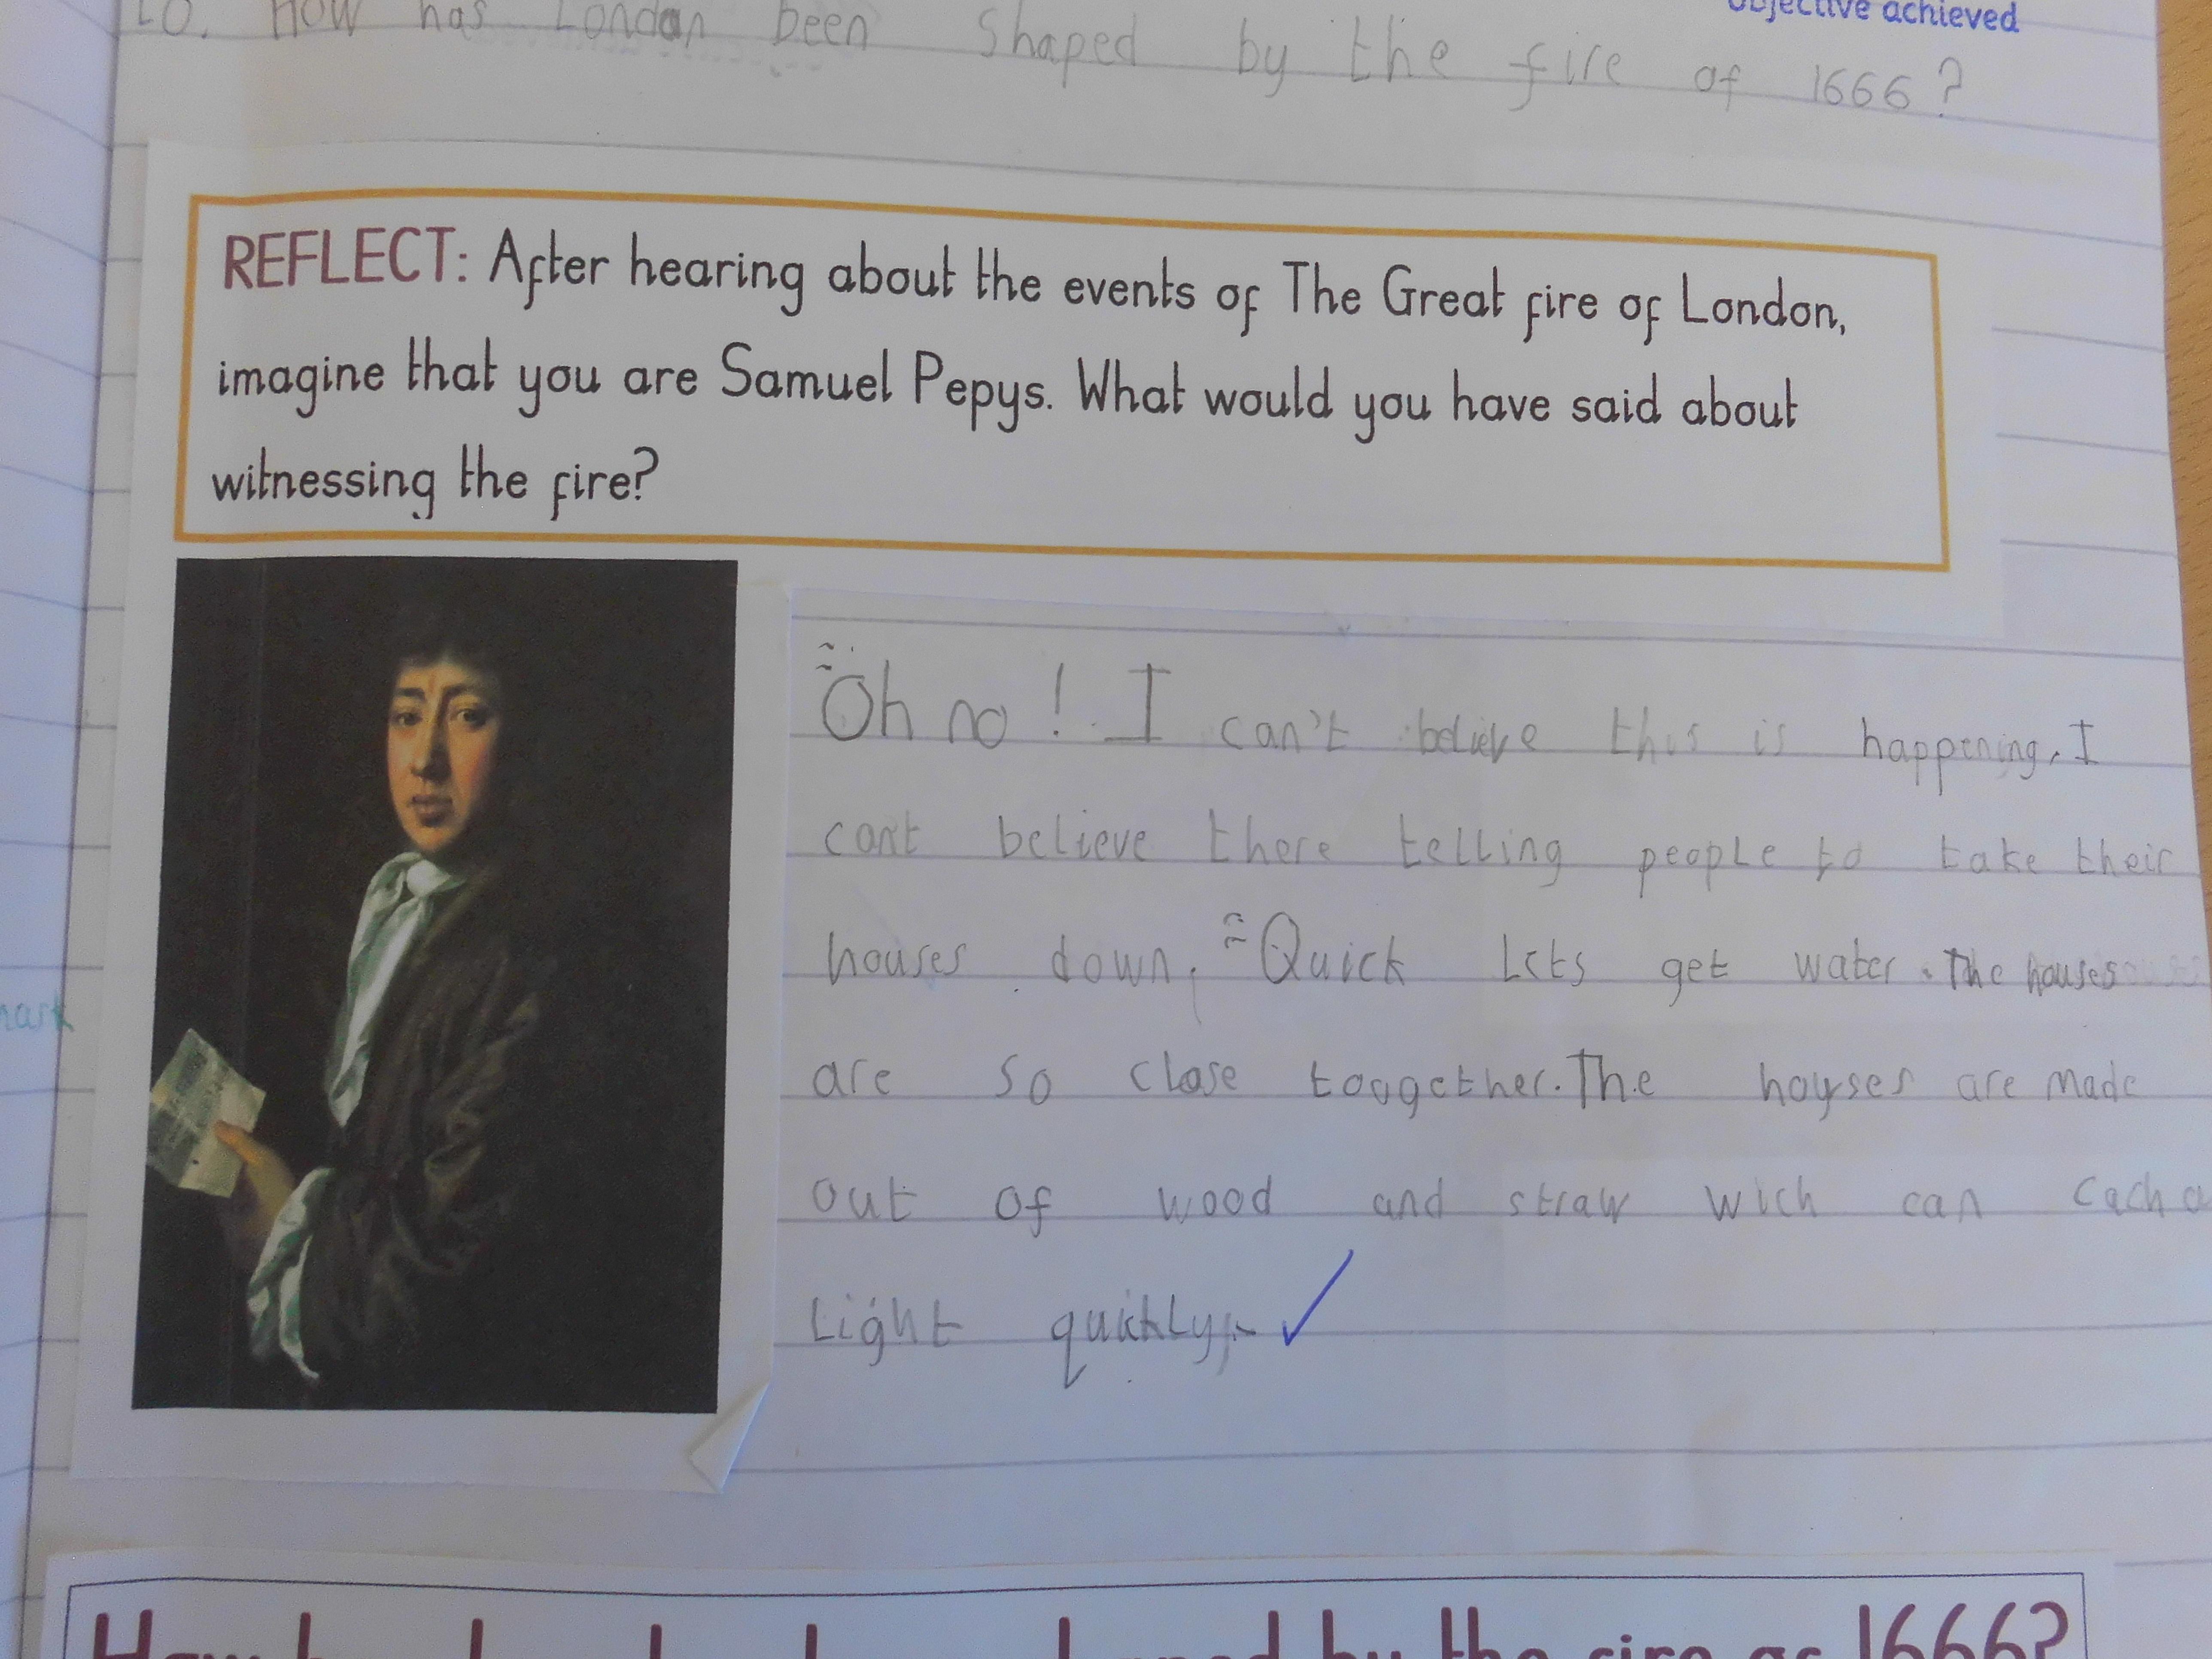 objective achieved
LO. How has London been shaped by the fire of 1666?
REFLECT: After hearing about the events of The Great fire of London,
imagine that you are Samuel Pepys. What would you have said about
witnessing the fire?
Oh no! I can't believe this is happening. I
cant believe there telling people to take their
houses down. Quick Lets get water. The houses
are so close tougether. The houses are made
out of wood and straw wich can cach a
Light quickly.
by the fire of 1666?